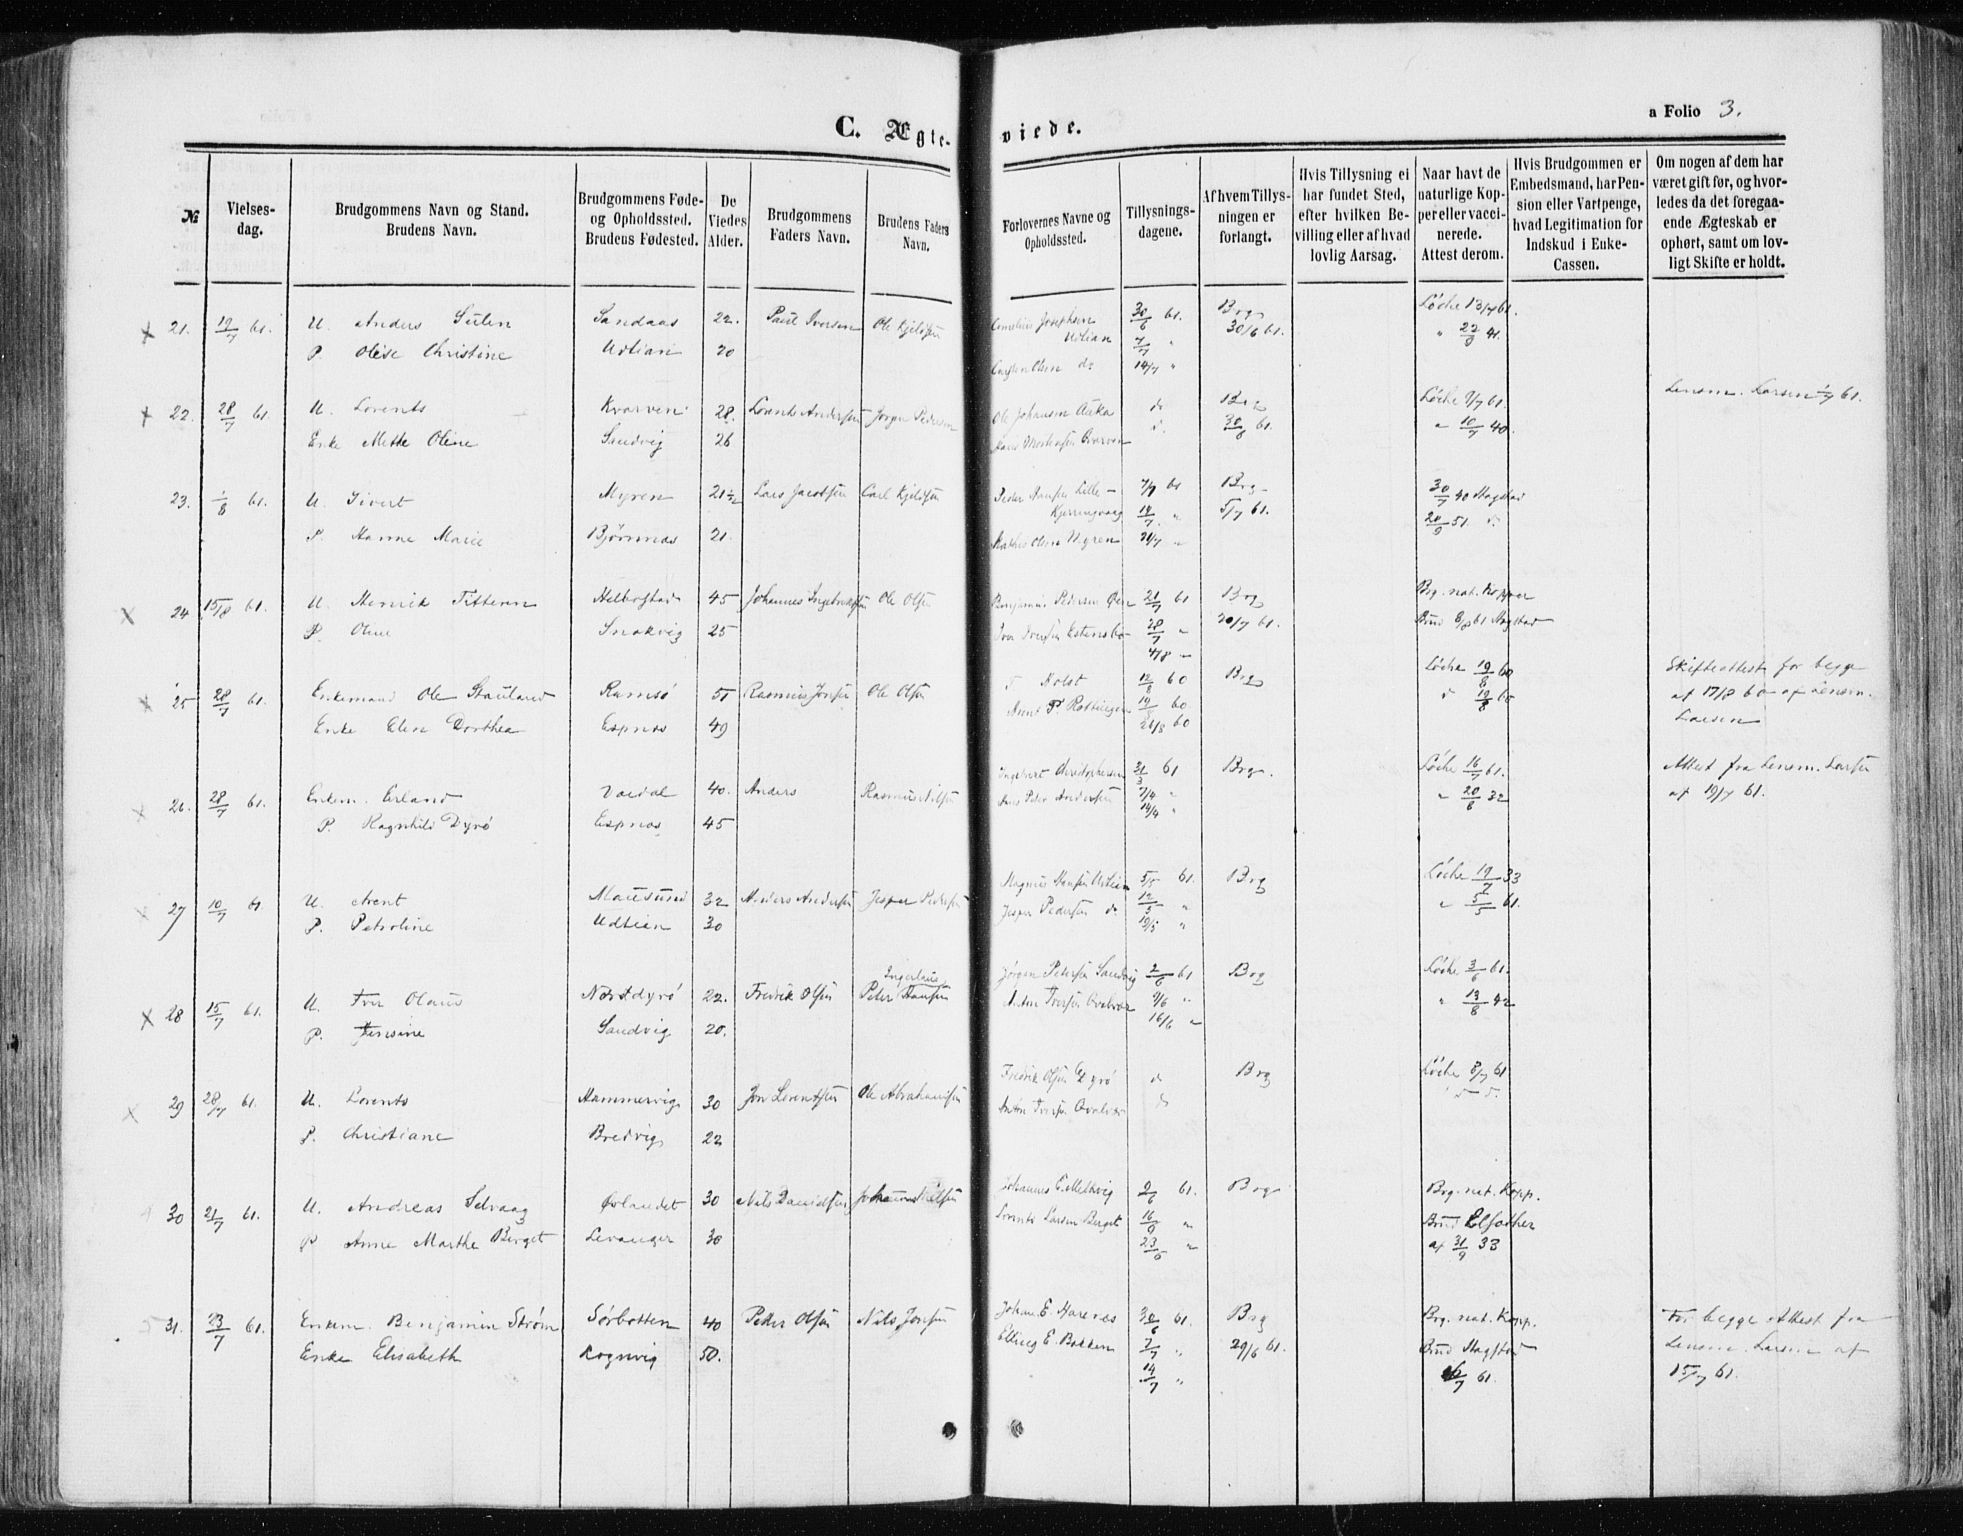 C. Ægteviede.
a Folio 3.
№ Vielsesdag. Brudgommens Navn og Stand. Brudens Navn. Brudgommens Føde- og Opholdssted. Brudens Fødested. De Viedes Alder. Brudgommens Faders Navn. Brudens Faders Navn. Forlovernes Navne og Opholdssted. Tillysningsdagene. Af hvem Tillysningen er forlangt. Hvis Tillysning ei har fundet Sted, efter hvilken Bevilling eller af hvad lovlig Aarsag. Naar havt de naturlige Kopper eller vaccinerede. Attest derom. Hvis Brudgommen er Embedsmand, har Pension eller Vartpenge, hvad Legitimation for Indskud i Enke-Cassen. Om nogen af dem har været gift før, og hvorledes da det foregaaende Ægteskab er ophørt, samt om lovligt Skifte er holdt.
21. 19/7 61. U. Anders Sandaas 22. Paul Iversen Ole Kjeldsen 30/6 61. Brg Løche 13/7 61.
P. Olise Christine Udtian 20 Udtian 7/7 " 30/6 61. " 22/8 41.
Olsen do 14/7 "
22. 28/7 61. U. Lorents Kvarven 28. Lorents Andersen Jørgen Pedersen Ole Johansen do Brg Løche 9/7 61. Lensm. Larsen 61.
Enke Mette Oline Sandvig 26 d. 30/6 61. " 10/7 40.
23. 1/8 61. U. Sivert Myren 21½ Lars Jacobsen Carl Kjeldsen Peder Hansen Lille- 7/7 61 Brg 30/7 40 Hagstad
P. Hanne Marie Bjørnnes 21. Kjerringvaag 14/7 " 5/7 61. 20/9 51. d.
Mathis Olsen Myren 21/7 "
24 15/8 61. U. Henrik 45 Johannes Ole Olsen Benjamin Pedersen 21/7 61 Brg Brg. nat. Kopper
P. Oline Snekvig 25 Iver Iversen 28/7 " 20/7 61. Brud 6/8 61 Hagstad
4/8 "
25 28/7 61. Enkemand Ole Stauland Ramsø 51 Rasmus Jonsen Ole Olsen Holst 12/8 60 Brg Løche 19/8 60 Skifteattest for begge
Enke Elen Dorthea Espnes 49 Arent P. 19/8 60 d 19/8 60 af 17/8 60 af Lensm.
26/8 60 Larsen
26. 28/7 61. Enkem. Erland 40. Anders Rasmus Nilsen Ingebret Christophersen 31/3 61 Brg. Løche 16/7 61. Attest fra Lensm. Larsen
P. Ragnhild Dyrø Espnes 45 Peter Andersen 7/4 " " 20/8 32 af 19/7 61.
14/4 "
27 10/7 61. U. Arent Mausund 32 Anders Andersen Jesper Pedersen Magnus Hansen Udtian 5/5 61. Brg Løche 19/7 33
P. Petroline Udtian 30 Jesper Pedersen do 12/5 " " 5/5 61.
19/5 "
28 15/7 61. U. Iver Olaus Norddyrø 22. Fredrik Olsen Peter Hansen Jørgen Petersen Sandvig 2/6 61 Brg Løche 3/6 61.
P. Jensine Sandvig 20. Anton Iversen 9/6 " " 13/8 42
16/6 "
29 28/7 61. U. Lorents Hammervig 30 Jon Lorentsen Ole Abrahamsen Fredrik Olsen Dyrø do Brg Løche 8/7 61
P. Christiane Bredvig 22 Anton Iversen do
30 21/7 61. U. Andreas Selvaag Ørlandet 30 Nils Danielsen Johannes Johannes E. Melkvig 2/6 61. Brg Brg. nat. Kopp.
P Anne Marthe Berget Levanger 30 Lorents Larsen Berget 16/6 " Brud
23/6 " af 31/9 33
31. 23/7 61. Enkem. Benjamin Strøm Sørbotten 40 Peter Olsen Nils Jonsen Johan E. 30/6 61. Brg Brg. nat. Kopp. For begge Attest fra
Enke Elisabeth 50. Elling E. Bakken 7/7 " 29/6 61. Brud Hagstad Lensm. Larsen af
14/7 " 61. 15/7 61.